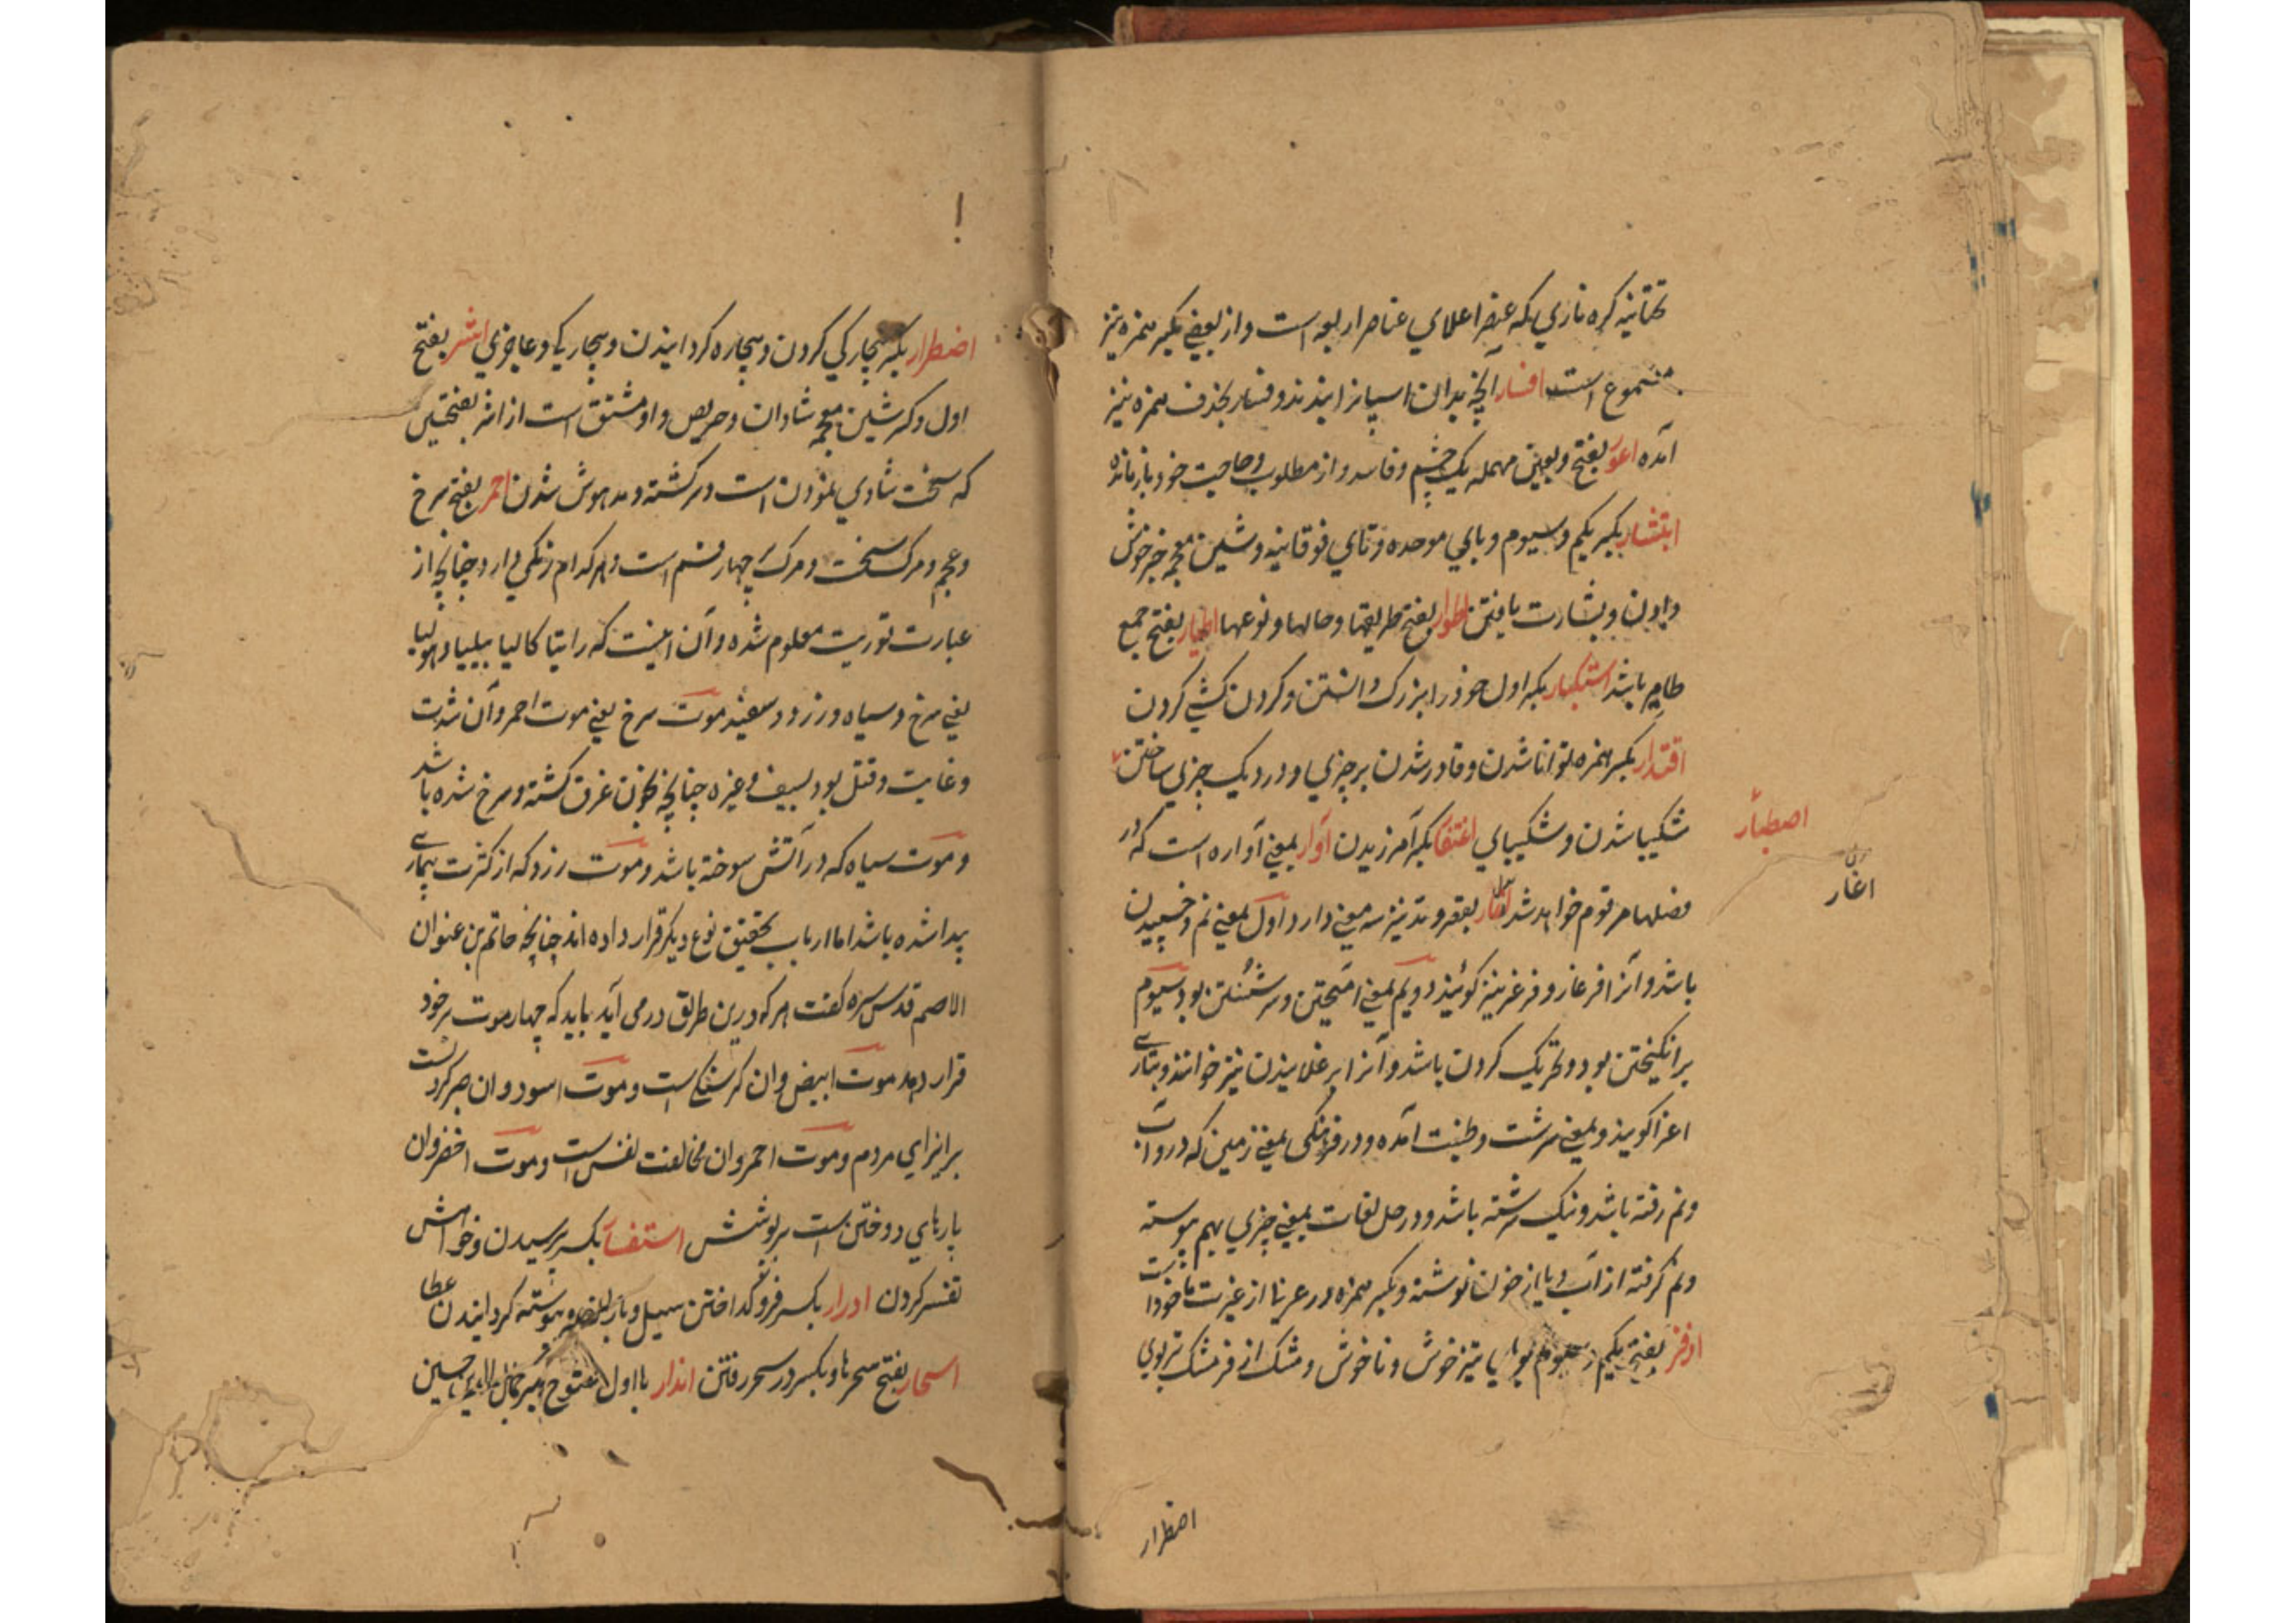 تحتانیه کره ناری که عنصر اعلای عناصر اربعه است و از بعضی بکسر همزه نیز
مسموع است افسار آنچه بدان اسپانرا بندند و فسار بحذف همزه نیز
آمده اعور بفتح و بعین مهمله یک چشم و فاسد و از مطلوب و حاجت خود باز مانده
ابتشار بکسر یکم و سیوم و بای موحده و تای فوقانیه و شین معجمه خبر خوش
دادن و بشارت یافتن اطوار بفتح طریقها و حالها و نوعها اطیار بفتح جمع
طایر باشد استکبار بکسر اول خود را بزرک دانستن و کردن کشی کردن
اقتدار بکسر همزه توانا شدن و قادر شدن بر چیزی و در دیک چیزی ساختن
اصطبار
شکیبا شدن و شکیبای اغتفار بکسر آمرزیدن آوار بمعنی آواره است که در
اغار
فصلها مرقوم خواهد شد بقصر و مد نیز سه معنی دارد اول بمعنی نم و خسپیدن
باشد و آنرا فرغار و فرغر نیز کویند دویم بمعنی آمیختن و سرشتن بود سیوم
برانکیختن بود و تحریک کردن باشد و آنرا برغلانیدن نیز خوانند و بتازی
اغرا کویند و بمعنی سرشت و طینت آمده و در فرهنکی بمعنی زمین که در و آب
و نم رفته باشد و نیک سرشته باشد و در حل لغات بمعنی چیزی بهم پیوسته
و نم کرفته از آب و یا از خون نوشته و بکسر همزه در عربی از غیرت ماخوذ است
اذفر بفتح یکم و سیوم بویا تیز خوش و ناخوش و مشک اذفر مشک تر بوی
اضطرار
اضطرار بکسر بیچارکی کردن و بیچاره کردانیدن و بیچارکی و عاجزی اشر بفتح
اول و کسر شین معجمه شادان و حریص و او مشتق است از اشر بفتحتین
که سخت شادی نمودن است و سرکشته و مدهوش شدن احمر بفتح سرخ
و عجم و مرک سخت و مرک چهار قسم است و هر کدام رنکی دارد چنانچه از
عبارت توریت معلوم شده و آن اینست که راتیا کالیا پیلیا دهولیا
یعنی سرخ و سیاه و زرد و سفید موت سرخ یعنی موت احمر و آن شدت
و غایت و قتل بود بسیف و غیره چنانچه بخون غرق کشته و سرخ شده باشد
و موت سیاه که در آتش سوخته باشد و موت زرد که از کثرت بیماری
پیدا شده باشد اما ارباب تحقیق نوع دیکر قرار داده اند چنانچه حاتم بن عنوان
الاصم قدس سره کفت هر که درین طریق درمی آید باید که چهار موت بر خود
قرار دهد موت ابیض و ان کرسنکی است و موت اسود و ان صبر کردنست
بر ایذای مردم و موت احمر و ان مخالفت نفس است و موت اخضر و ان
پارهای دوختن است بر پوشش استفسار بکسر پرسیدن و خواهش
تفسیر کردن ادرار بکسر فرو کداختن سیل و باران و پیوسته کردانیدن عطا
اسحار بفتح سحرها و بکسر در سحر رفتن انذار با اول مفتوح